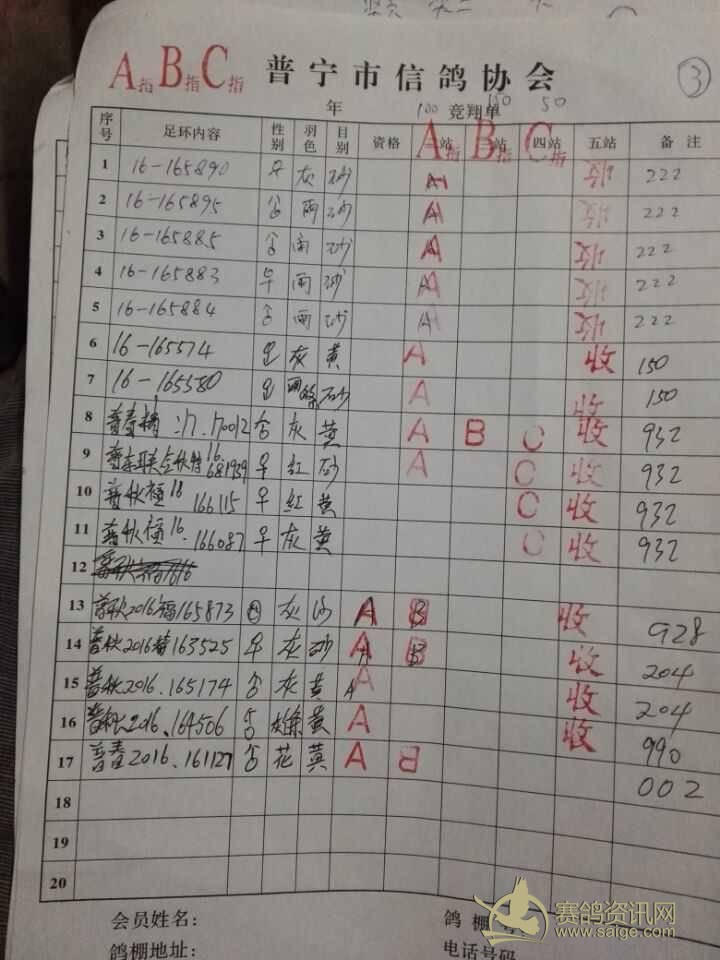 A指B指C指 普宁市信鸽协会 ③
年 100 竞翔单 100 50
序号 足环内容 性别 羽色 目别 资格 二站 三站 四站 五站 备注
A指 B指 C指
1 16-165890 灰 砂 A 收 222
2 16-165895 雨 砂 A 收 222
3 16-165885 雨 砂 A 收 222
4 16-165883 雨 砂 A 收 222
5 16-165884 雨 砂 A 收 222
6 16-165574 灰 黄 A 收 150
7 16-165580 砂 A 收 150
8 普春 17.170012 灰 黄 A B C 收 932
9 16 681959 红 砂 A C 收 932
10 普秋 166115 红 黄 C 收 932
11 普秋 16.166087 灰 黄 C 收 932
12
13 普秋2016 165873 灰 沙 A B 收 928
14 普秋2016 163525 灰 砂 A B 收 204
15 普秋2016.165174 灰 黄 A 收 204
16 普秋2016.164506 黄 A 收 990
17 普春2016.161127 花 黄 A B 002
18
19
20
会员姓名： 鸽棚
鸽棚地址： 电话号码
赛鸽资讯网
www.saige.com